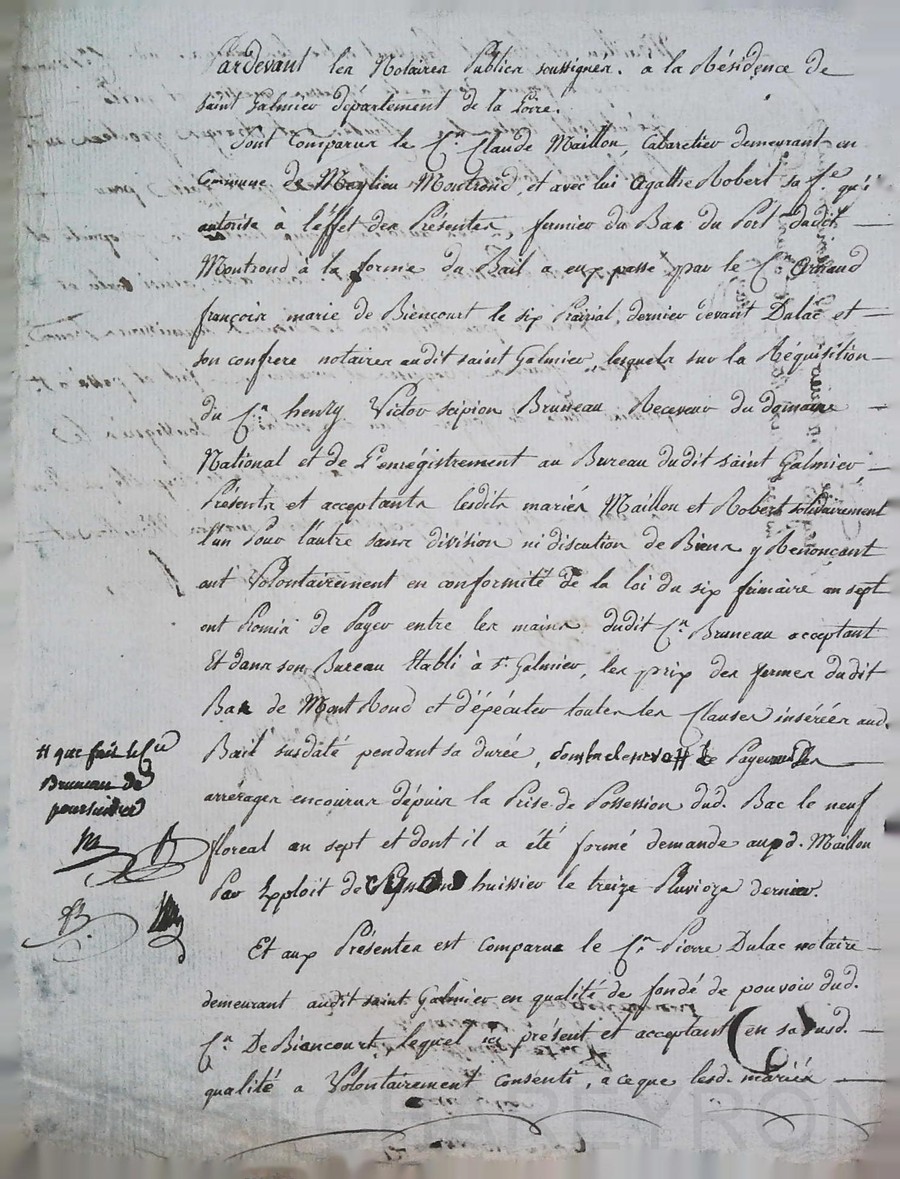 Pardevant les Notaires Publics soussignés. à la Résidence de
saint Galmier département de la Loire.
Sont Comparus le C.en Claude Maillon, Cabaretier demeurant en
Commune de Meylieu Montrond, et avec lui Agathe Robert sa f.e qu'i
autorise à l'effet des Présentes, fermier du Bac du Port dudit
Montrond à la forme du Bail a eux passé par le C.en Armand
françois marie de Biencourt le six Prairial dernier devant Dulac et
son confrere notaires audit saint Galmier, lesquels sur la Réquisition
du C.en henry Victor scipion Bruneau Receveur du domaine
National et de L'enrégistrement au Bureau dudit saint Galmier,
Présents et acceptants lesdits mariés Maillon et Robert solidairement
l'un Pour l'autre sans division ni discution de Biens y Renonçant
ont Volontairement en conformité de la loi du six frimaire an sept
ont Promis de Payer entre les mains dudit C.en Bruneau acceptant
Et dans son Bureau Etabli à s.t Galmier, les prix des fermes dudit
Bac de MontRond et d'éxécuter toutes les Clauses insérées aud.
Bail susdaté pendant sa durée, de Payer les
arrérages encourus dépuis la Prise de Possession dud. Bac le neuf
floreal an sept et dont il a été formé demande auxd. Maillon
Par Exploit de huissier le treize Pluvioze dernier.
Et aux Présentes est Comparu le C.en Pierre Dulac notaire
demeurant audit saint Galmier en qualité de fondé de pouvoir dud.
C.en De Biencourt, lequel ici présent et acceptant en sa susd.
qualité a Volontairement Consenti, a ce que lesd. mariés
# que fait led C.en
Bruneau de
poursuites
M R
B